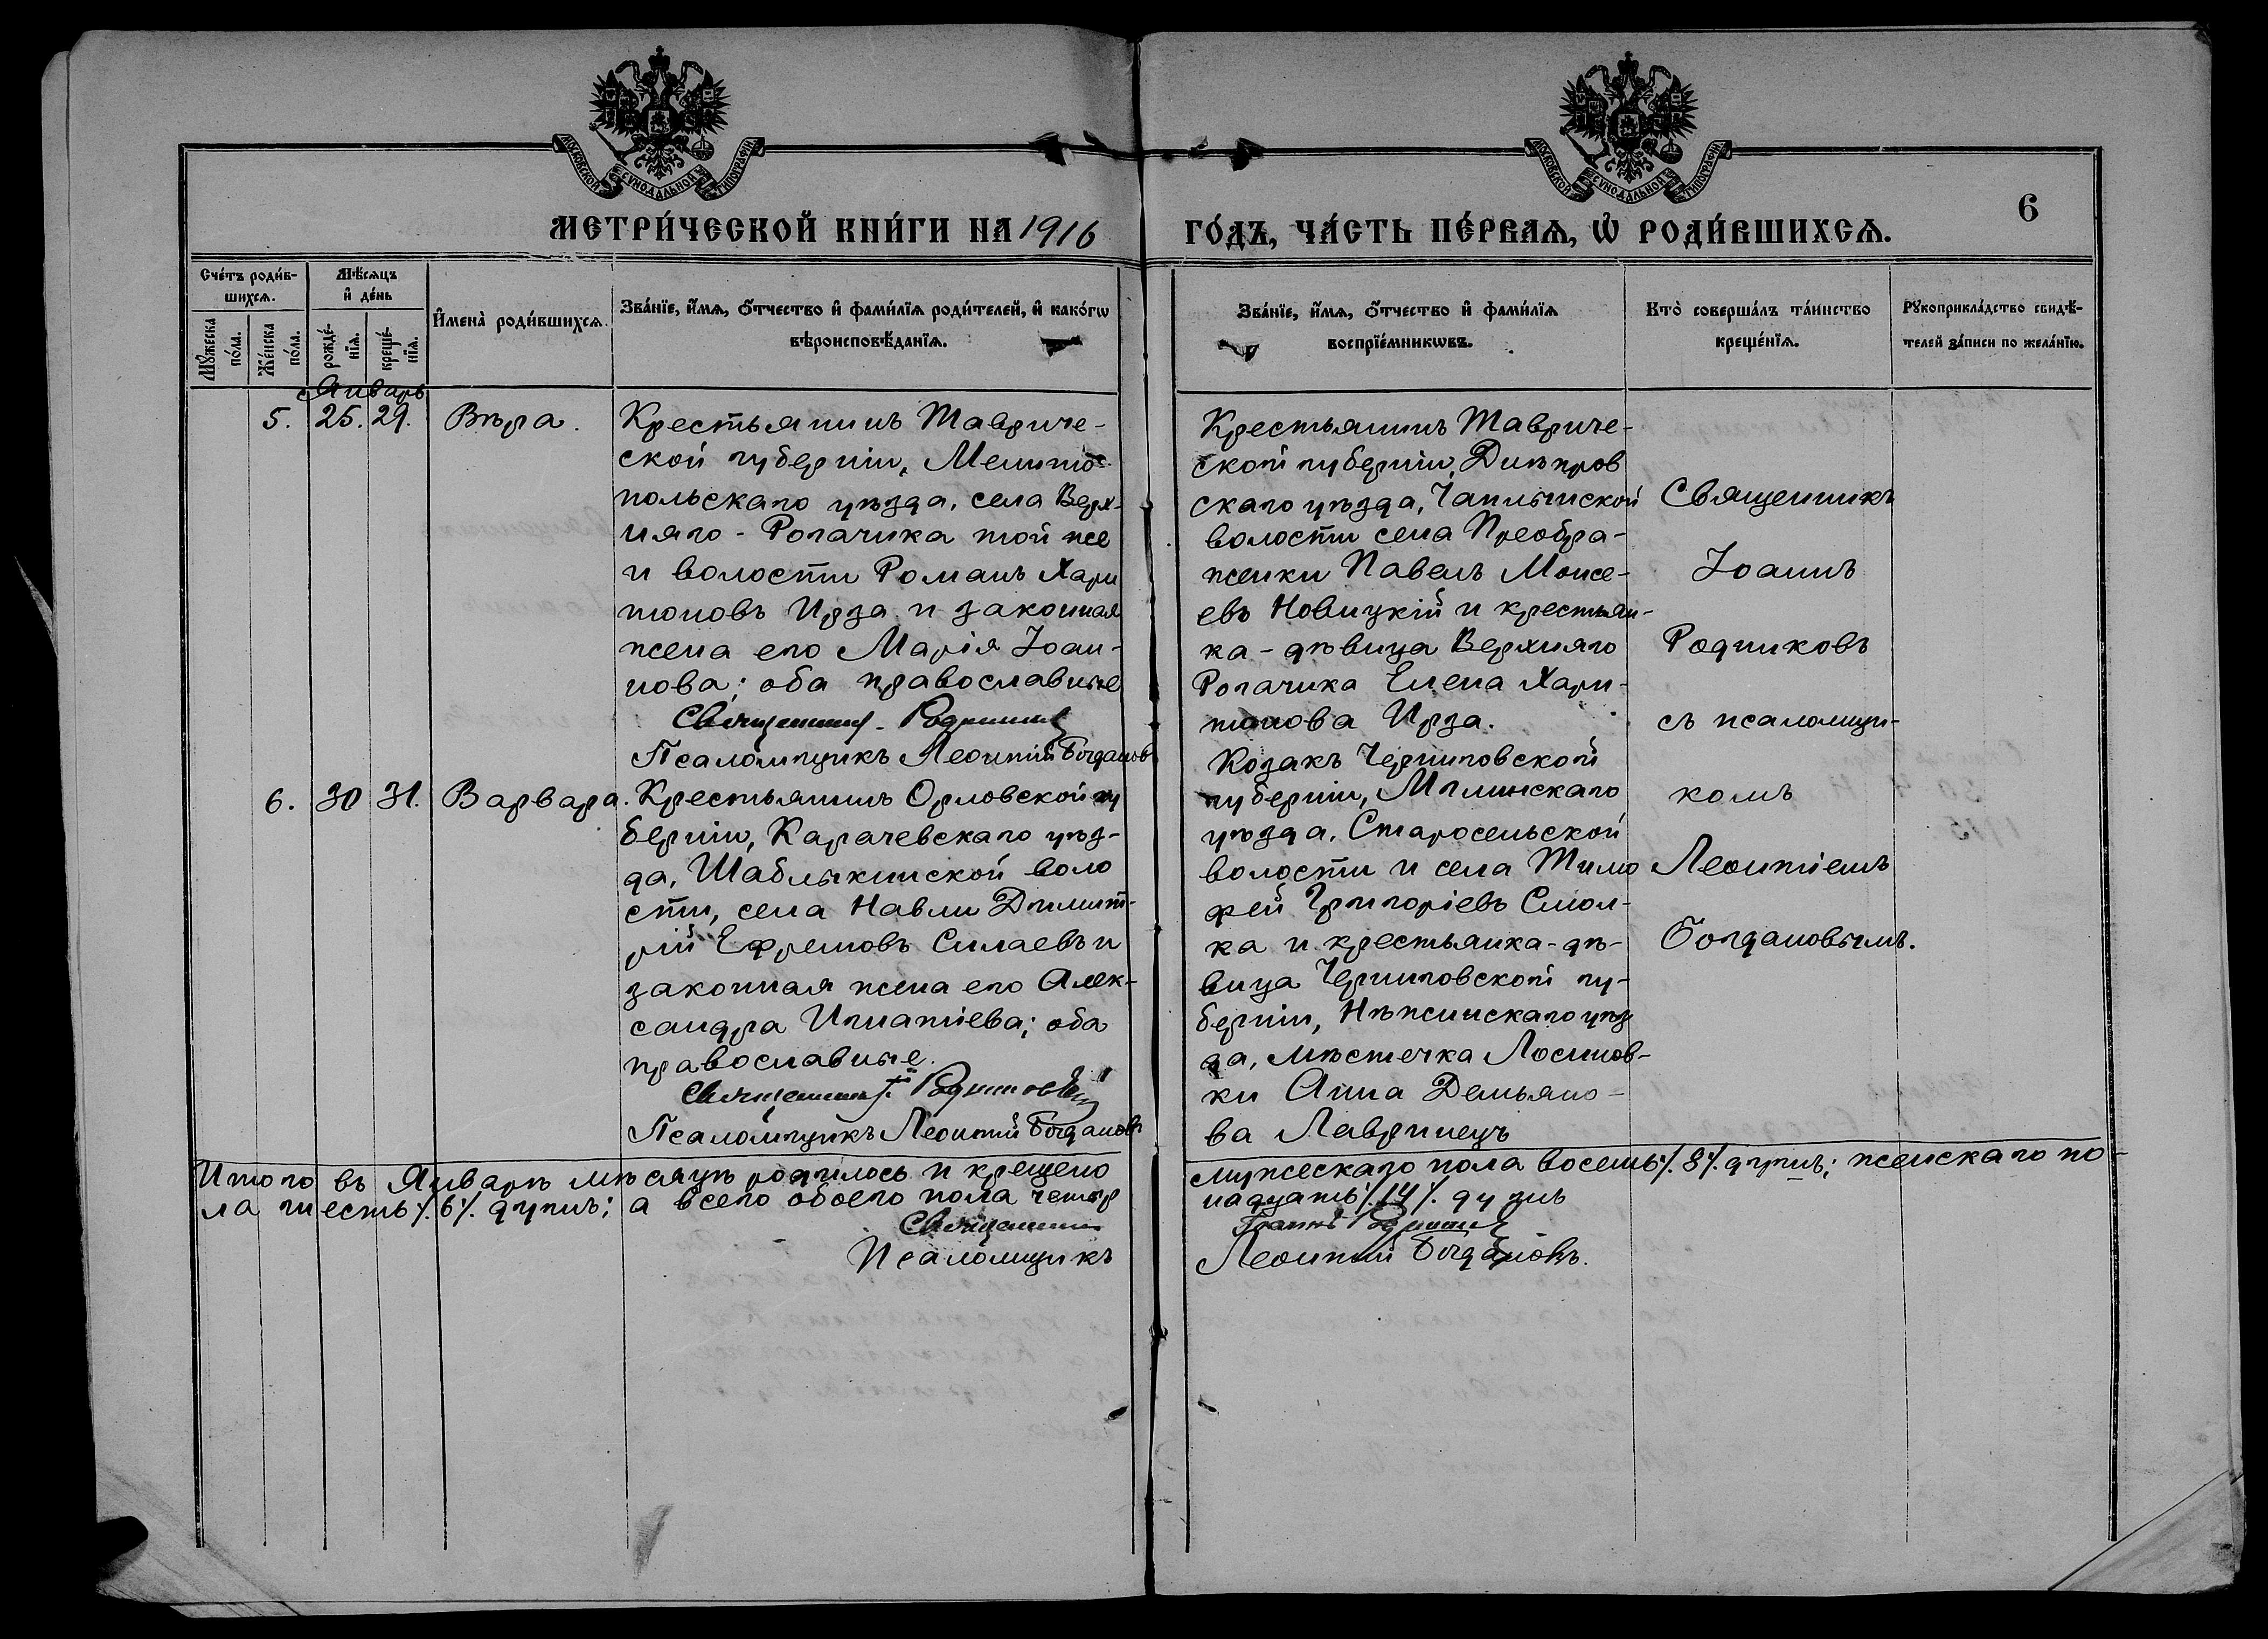 МОСКОВСКОЙ СУНОДАЛЬНОЙ ТИПОГРАФІИ
МОСКОВСКОЙ СУНОДАЛЬНОЙ ТИПОГРАФІИ
МЕТРИ́ЧЕСКОЙ КНИ́ГИ НА 1916
ГО́ДЪ, ЧА́СТЬ ПЕ́РВАѦ, Ѡ҆ РОДИ́ВШИХСѦ.
6
Сче́тъ роди́в-
шихсѧ.
Мꙋ́жеска
по́ла.
Же́нска
по́ла.
Мѣ́сѧцъ
и҆ де́нь
рожде́-
нїѧ.
креще́-
нїѧ.
И҆мена̀ роди́вшихсѧ.
Зва́нїе, и҆́мѧ, ѻ҆́тчество и҆ фами́лїѧ роди́телей, и҆ како́гѡ
вѣроисповѣ́данїѧ.
Зва́нїе, и҆́мѧ, ѻ҆́тчество и҆ фами́лїѧ
воспрїе́мникѡвъ.
Кто̀ соверша́лъ та́инство
креще́нїѧ.
Рꙋкоприкла́дство свидѣ́-
телей за́писи по жела́нїю.
Январь
5. 25. 29. Вѣра.
Крестьянинъ Тавриче-
ской губерніи, Мелито-
польскаго уѣзда, села Верх-
няго-Рогачика той же
и волости Романъ Хари
тоновъ Ирза и законная
жена его Марія Іоан-
нова; оба православные
Священникъ Родниковъ
Псаломщикъ Леонтій Богдановъ
Крестьянинъ Тавриче-
ской губерніи, Днѣпров
скаго уѣзда, Чаплынской
волости села Преобра-
женки Павелъ Моисе-
евъ Новицкій и крестьян-
ка-дѣвица Верхняго
Рогачика Елена Хари-
тонова Ирза.
Священникъ
Іоаннъ
Родниковъ
съ псаломщи-
комъ
Леонтіемъ
Богдановымъ.
6. 30 31. Варвара.
Крестьянинъ Орловской гу
берніи, Карачевскаго уѣз-
да, Шаблыкинской воло
сти, села Навли Димит-
рій Ефремовъ Силаевъ и
законная жена его Алек-
сандра Игнатіева; оба
православные.
Священникъ І. Родниковъ
Псаломщикъ Леонтій Богдановъ
Козакъ Черниговской
губерніи, Мглинскаго
уѣзда, Старосельской
волости и села Тимо
фей Григоріевъ Смол-
ка и крестьянка-дѣ-
вица Черниговской гу-
берніи, Нѣжинскаго уѣз
да, мѣстечка Лосинов-
ки Анна Демьяно-
ва Лавринецъ
Итого въ Январѣ мѣсяцѣ родилось и крещено мужескаго пола восемь ./. 8 ./. душъ; женскаго по-
ла шесть ./. 6 ./. душъ; а всего обоего пола четыр надцать ./. 14 ./. душъ
Священникъ Іоаннъ Родниковъ
Псаломщикъ Леонтій Богдановъ.